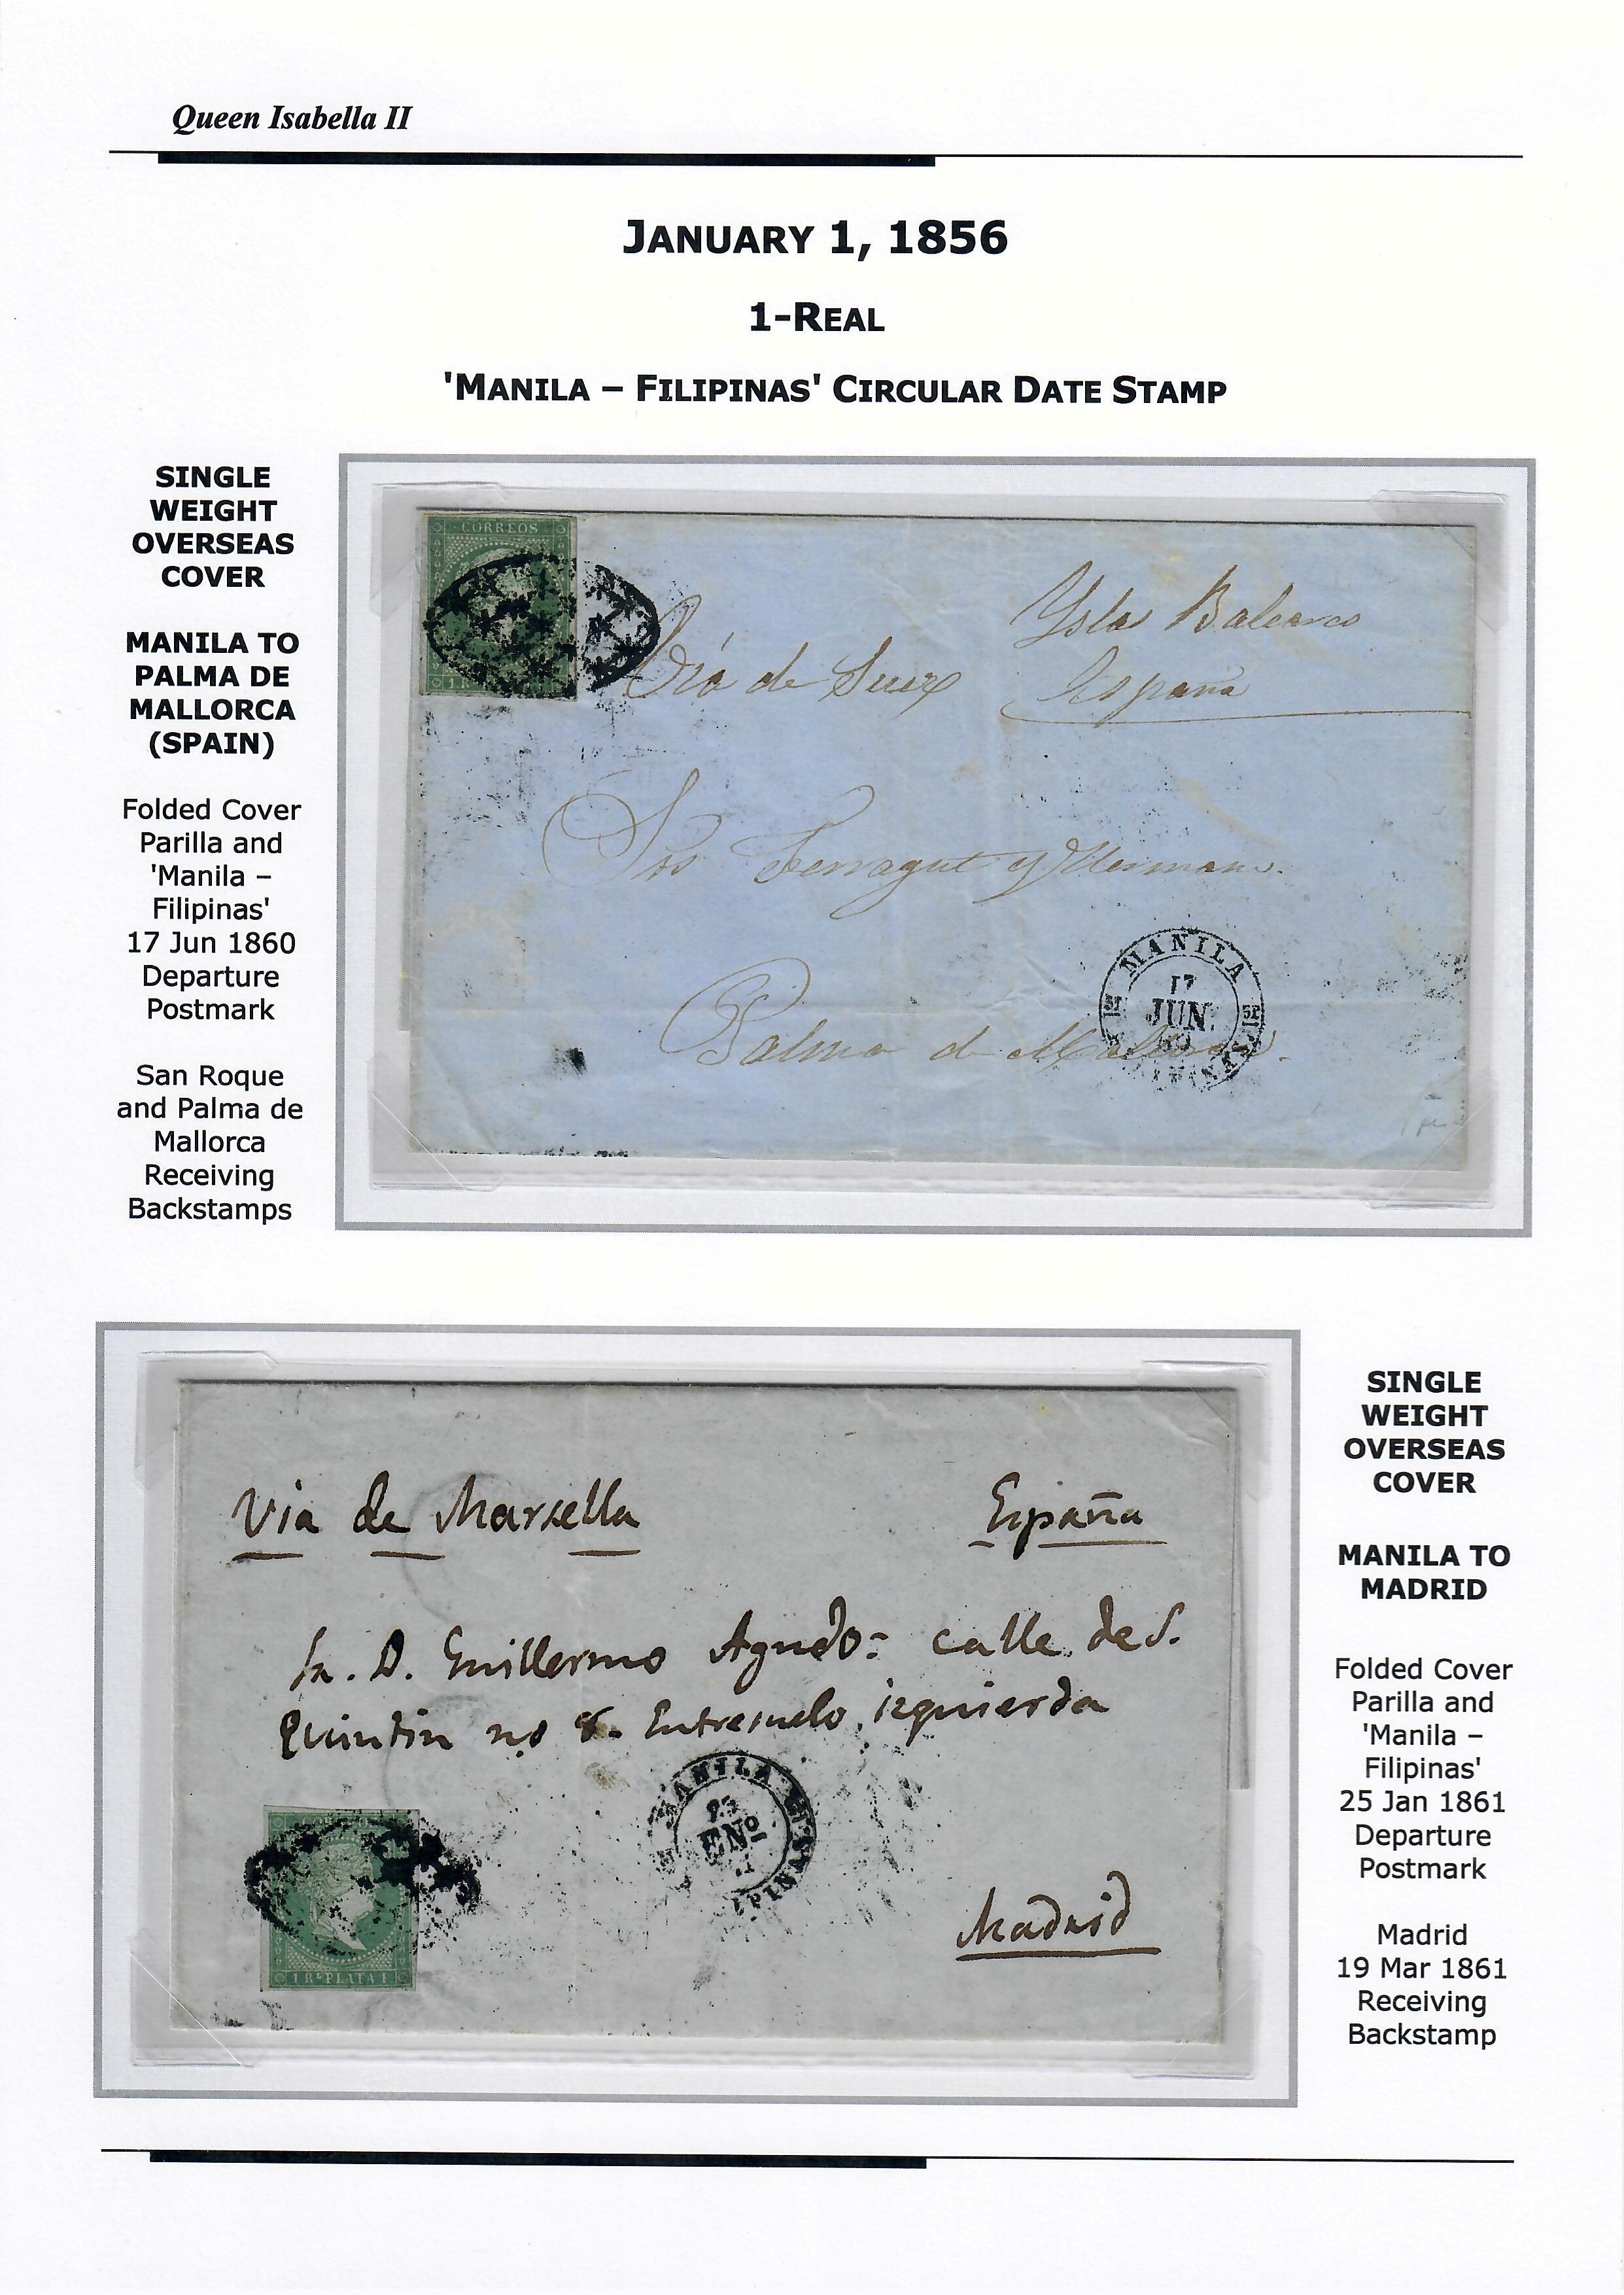 Queen Isabella II
JANUARY 1, 1856
1-REAL
'MANILA – FILIPINAS' CIRCULAR DATE STAMP
SINGLE
WEIGHT
OVERSEAS
COVER
MANILA TO
PALMA DE
MALLORCA
(SPAIN)
Folded Cover
Parilla and
'Manila –
Filipinas'
17 Jun 1860
Departure
Postmark
San Roque
and Palma de
Mallorca
Receiving
Backstamps
CORREOS
Ysla Baleares
Via de Suez España
Sres Ferragut y Herman
MANILA
17
JUN.
Palma de Mallorca
Via de Marsella España
Sr. D. Guillermo Agudo= calle de S.
Quintin no 8. Entresuelo izquierda
MANILA
25
ENO
1 Rl PLATA F
Madrid
SINGLE
WEIGHT
OVERSEAS
COVER
MANILA TO
MADRID
Folded Cover
Parilla and
'Manila –
Filipinas'
25 Jan 1861
Departure
Postmark
Madrid
19 Mar 1861
Receiving
Backstamp